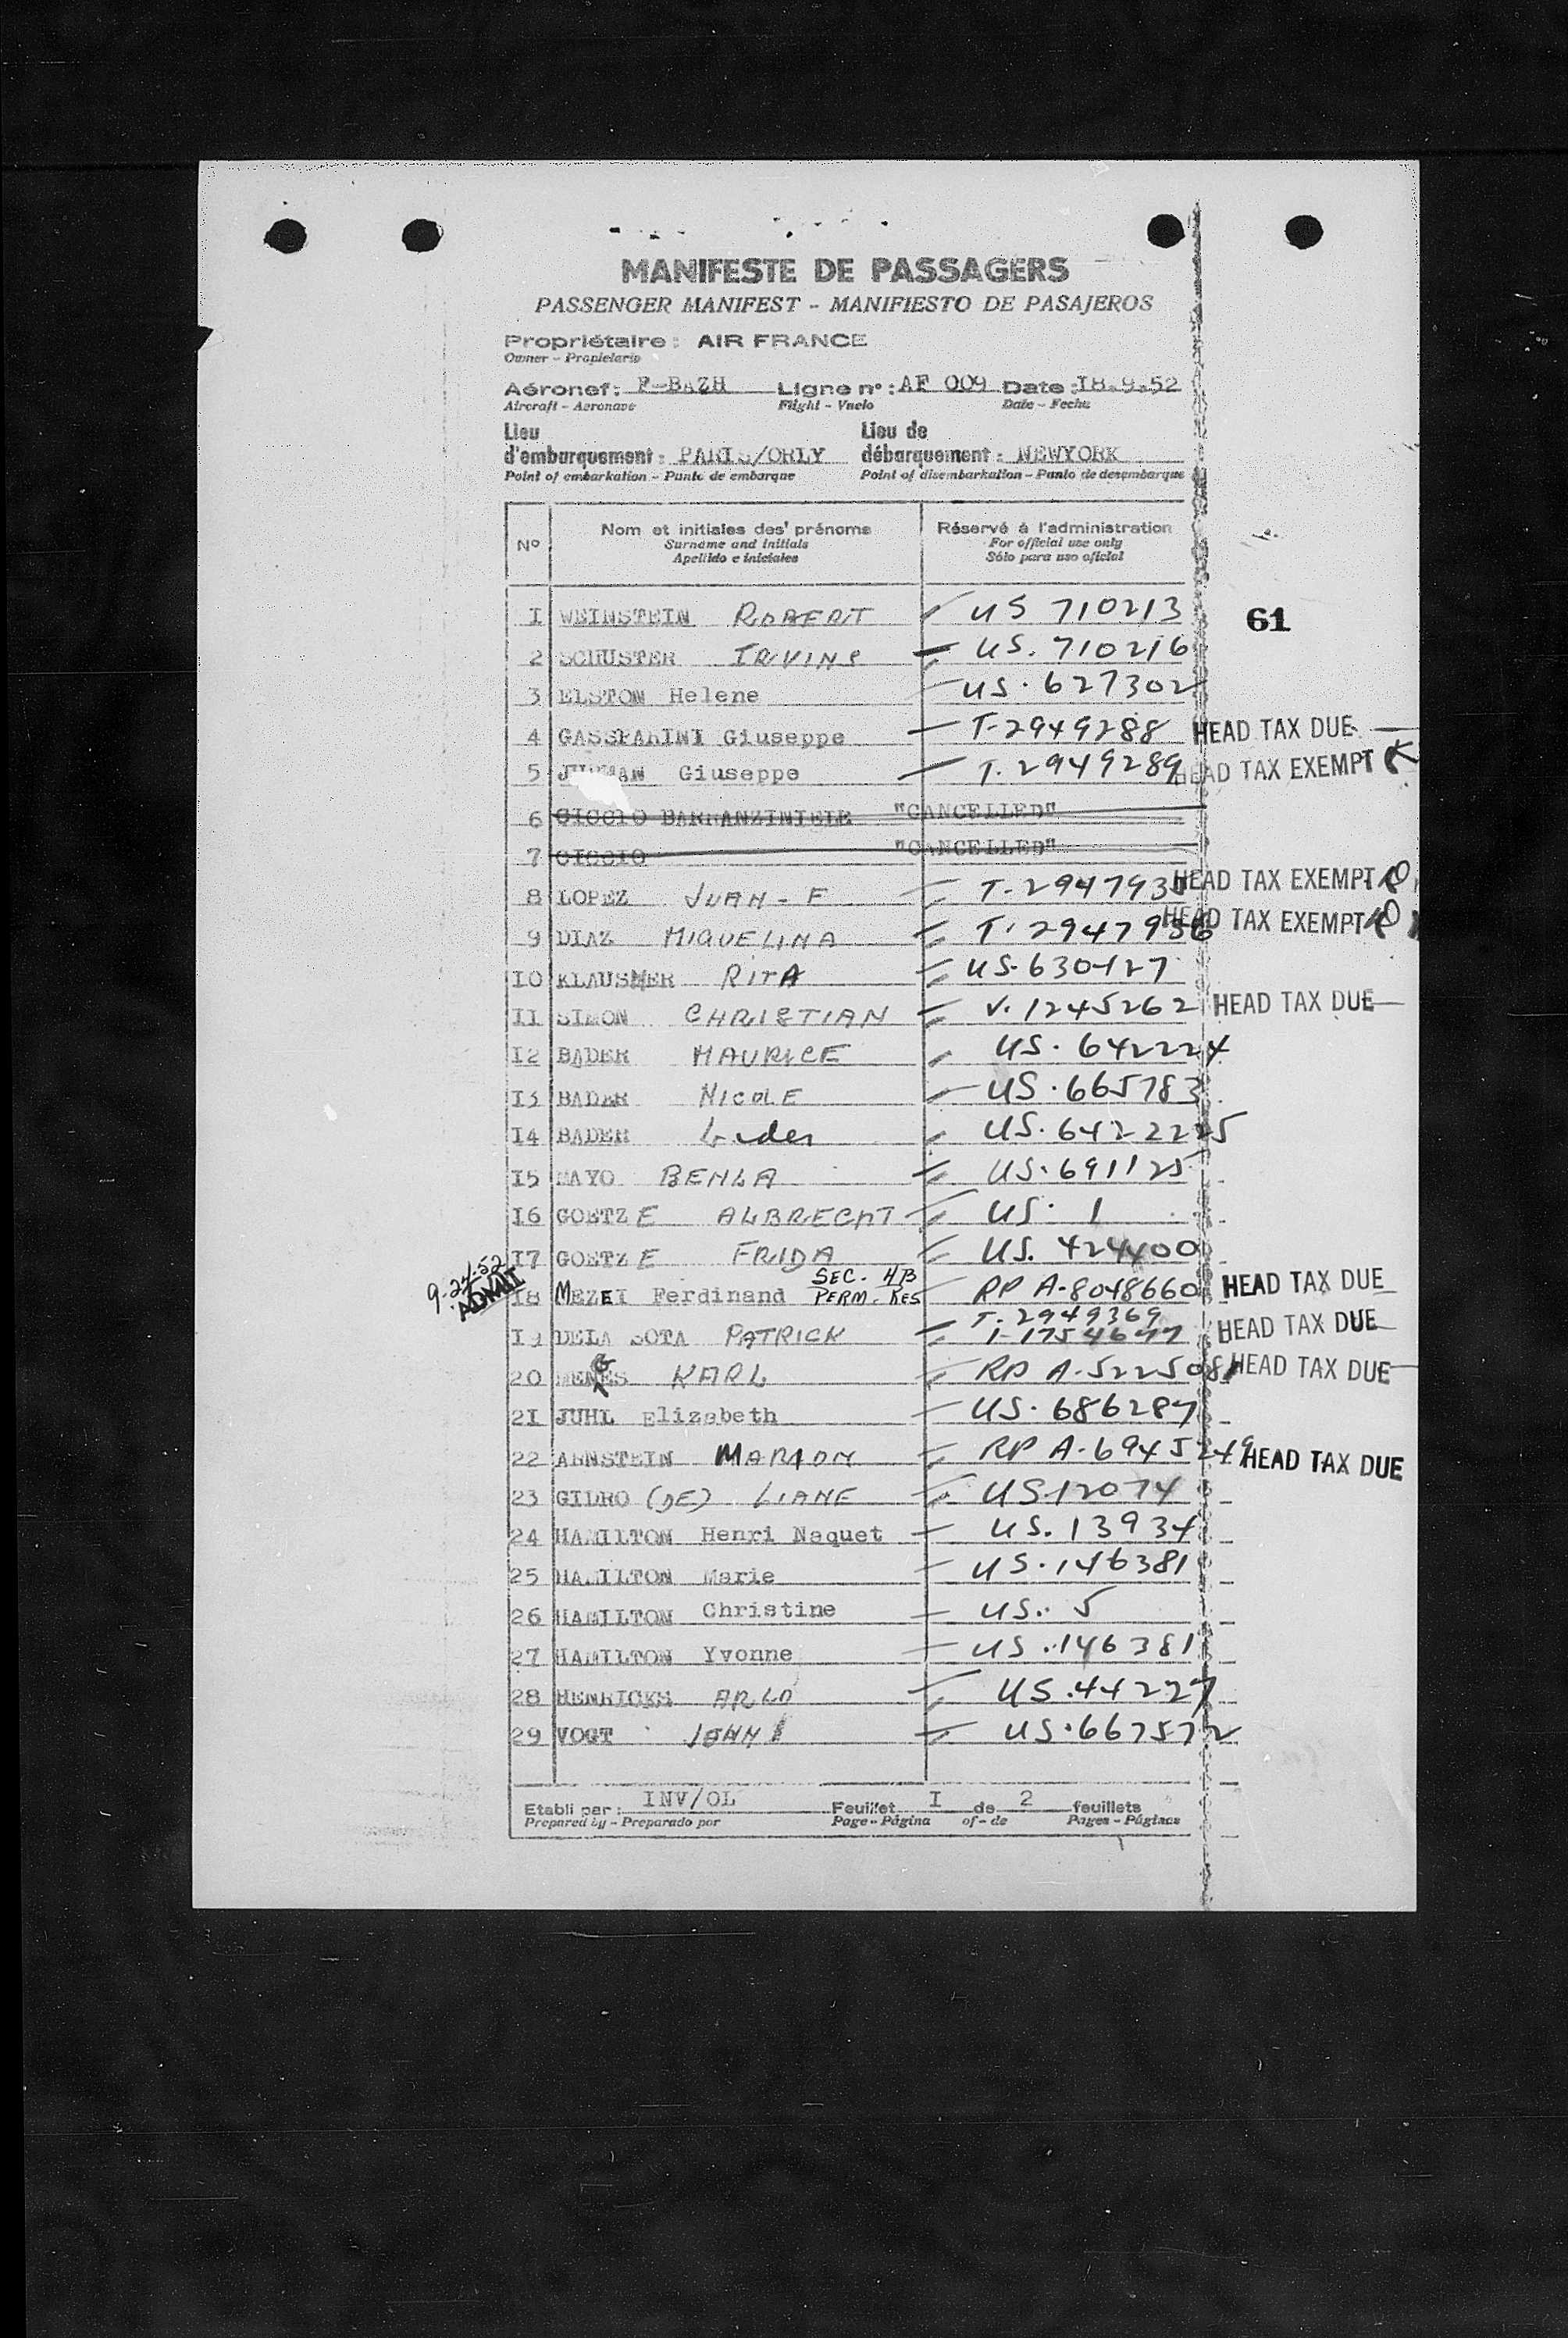 MANIFESTE DE PASSAGERS
PASSENGER MANIFEST - MANIFIESTO DE PASAJEROS
Propriétaire : AIR FRANCE
Owner - Propietario
Aéronef : F-BAZH Ligne n° : AF 009 Date : I8.9.52
Aircraft - Aeronave Flight - Vuelo Date - Fecha
Lieu d'embarquement : PARIS/ORLY Lieu de débarquement : NEWYORK
Point of embarkation - Punto de embarque Point of disembarkation - Punto de desembarque
N° Nom et initiales des prénoms Réservé à l'administration
Surname and initials For official use only
Apellido e iniciales Sólo para uso oficial
I WEINSTEIN ROBERT US 710213 61
2 SCHUSTER IRVING US. 710216
3 ELSTON Helene US. 627302
4 GASSPARINI Giuseppe T-2949288 HEAD TAX DUE
5 Giuseppe T. 2949289 HEAD TAX EXEMPT
6 CICCIO BARRANZINIELE "CANCELLED"
7 CICCIO "CANCELLED"
8 LOPEZ JUAN-F T-2947935 HEAD TAX EXEMPT
9 DIAZ MIQUELINA T. 2947936 HEAD TAX EXEMPT
I0 KLAUSNER RITA US. 630127
II SIMON CHRISTIAN V. 1245262 HEAD TAX DUE
I2 BADER MAURICE US. 642224
I3 BADER NICOLE US. 665783
I4 BADER US. 642225
I5 MAYO BENLA US. 691125
I6 GOETZE ALBRECHT US. 1
I7 GOETZE FRIDA US. 424400
9-24-52 ADMIT I8 MEZEI Ferdinand SEC. 4B PERM. RES RP A-8048660 HEAD TAX DUE
T-2949369
I9 DELA SOTA PATRICK HEAD TAX DUE
20 KARL RP A-5225081 HEAD TAX DUE
2I JUHL Elizabeth US. 686287
22 ARNSTEIN MARION RP A-6945249 HEAD TAX DUE
23 GILRO (DE) LIANE US 12074
24 HAMILTON Henri Naquet US. 13934
25 HAMILTON Marie US. 146381
26 HAMILTON Christine US. 5
27 HAMILTON Yvonne US. 146381
28 HENRICKS ARLO US. 44227
29 VOGT US. 667572
Etabli par : INV/OL Feuillet I de 2 feuillets
Prepared by - Preparado por Page - Página of - de Pages - Páginas